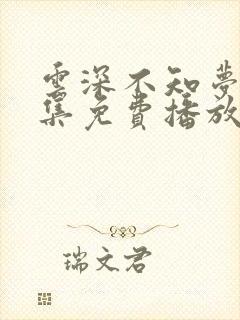 雲深不知夢
集免費播放
瑞文君